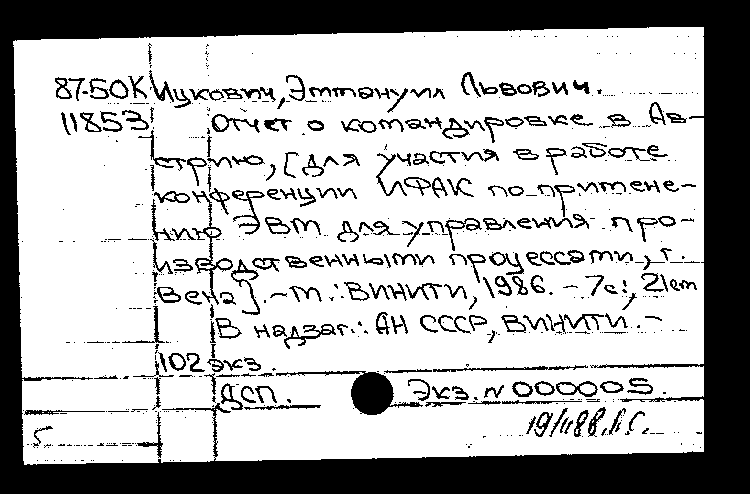 87-50К Ицкович, Эммануил Львович.
11853 Отчет о командировке в Ав-
стрию, [для участия в работе
конференции ИФАК по примене-
нию ЭВМ для управления про-
изводственными процессами, г.
Вена]. - М.: ВИНИТИ, 1986. - 7с.; 21см
В надзаг.: АН СССР, ВИНИТИ. -
102 экз.
ДСП. Экз. № 000005.
5